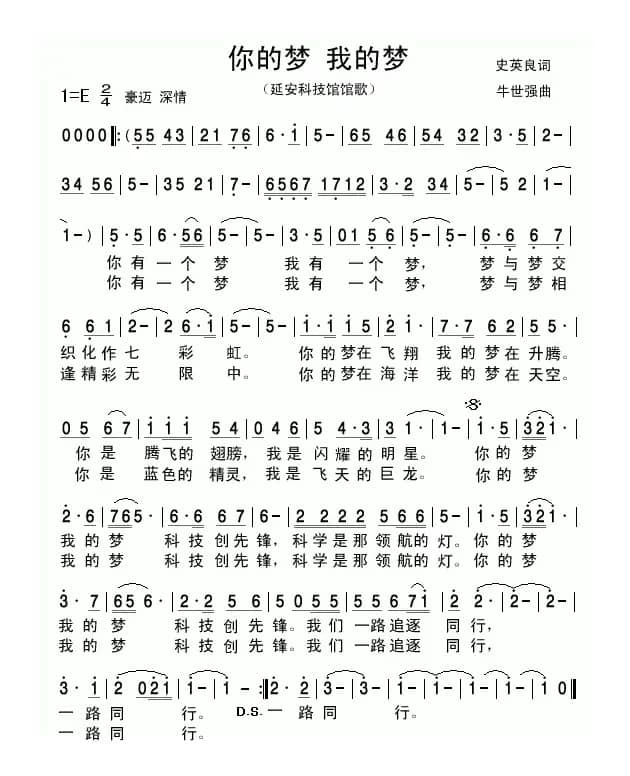 你的梦 我的梦
史英良词
1=E 2/4 豪迈 深情
（延安科技馆馆歌）
牛世强曲
0000‖:(55 43|21 76|6·1|5-|65 46|54 32|3·5|5-|
34 56|5-|35 21|7-|6567 1712|3·2 34|5-|5 2|1-|
1-)|5·5|6·56|5-|5-|3·5|01 56|5-|5-|6·6 6 7|
你有一个梦 我有一个梦，梦与梦交
你有一个梦 我有一个梦，梦与梦相
6 61|2-|2 6·1|5-|5-|1·1 15|2·|7·7 62|5·|
织化作七彩虹。 你的梦在飞翔 我的梦在升腾。
逢精彩无限中。 你的梦在海洋 我的梦在天空。
05 67|111 54|046|5 4·3|3 1|1-|1·5|321·|
你是腾飞的翅膀，我是闪耀的明星。 你的梦
你是蓝色的精灵，我是飞天的巨龙。 你的梦
2·6|765·|6·6 67|6-|2 222 566|5-|1·5|321·|
我的梦 科技创先锋，科学是那领航的灯。你的梦
我的梦 科技创先锋，科学是那领航的灯。你的梦
3·7|656·|2·2 56|5055|55671|2 2·|2-|2-|
我的梦 科技创先锋。我们一路追逐同行，
我的梦 科技创先锋。我们一路追逐同行，
3·1|2 021|1-|1-:‖2·2|3 2·|1-|1-|1-|10‖
一路同行。 D.S.一路同行。
一路同行。